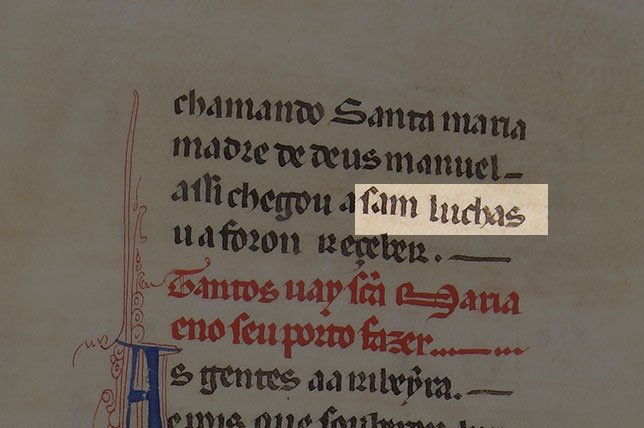 chamando Santa maria
madre de deus manuel–
assi chegou a sam luchas
u a foron reçeber. —
Tantos uay scã Maria
eno seu porto fazer.
As gentes aa ribeyra. —